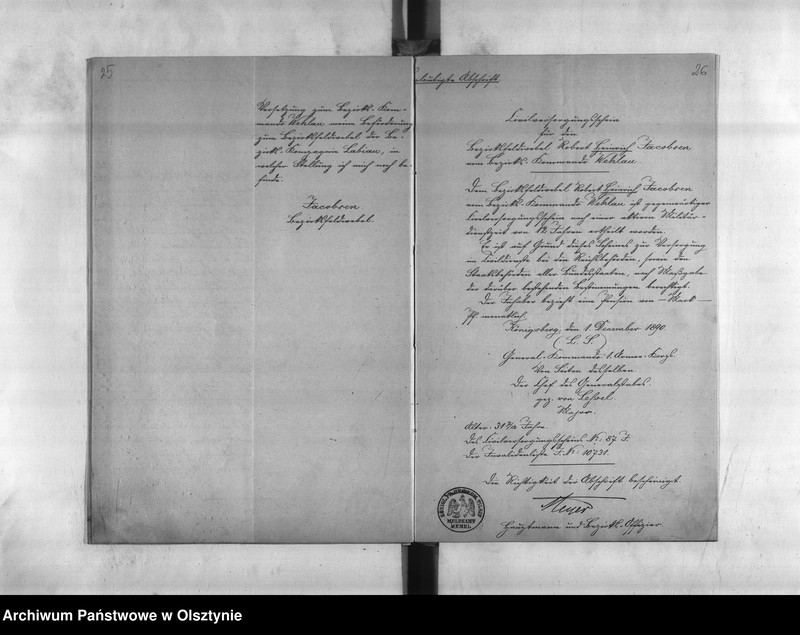 25
Versetzung zum Bezirks-Kom-
mando Wehlau meine Beförderung
zum Bezirksfeldwebel der Be-
zirks-Kompagnie Labiau, in
welcher Stellung ich mich noch be-
finde.
Jacobsen
Bezirksfeldwebel.
26
Beglaubigte Abschrift.
Civilversorgungsschein
für den
Bezirksfeldwebel Robert Heinrich Jacobsen
vom Bezirks-Kommando Wehlau.
Dem Bezirksfeldwebel Robert Heinrich Jacobsen
vom Bezirks-Kommando Wehlau ist gegenwärtiger
Civilversorgungsschein nach einer aktiven Militär-
dienstzeit von 12 Jahren ertheilt worden.
Er ist auf Grund dieses Scheines zur Versorgung
im Civildienste bei den Reichsbehörden, sowie den
Staatsbehörden aller Bundesstaaten, nach Maßgabe
der darüber bestehenden Bestimmungen berechtigt.
Der Inhaber bezieht eine Pension von — Mark —
Pf. monatlich.
Königsberg, den 1 Dezember 1890
(L. S.)
General-Kommando 1. Armee-Korps
Von Seiten desselben
Der Chef des Generalstabes.
gez. von
Major.
Alter: 31 Jahre
Des Civilversorgungsscheins No: 87 J.
Der Invalidenliste J. No: 10731.
Die Richtigkeit der Abschrift bescheinigt.
Meyer
Hauptmann und Bezirks-Offizier.
MELDEAMT
MEMEL
Archiwum Państwowe w Olsztynie